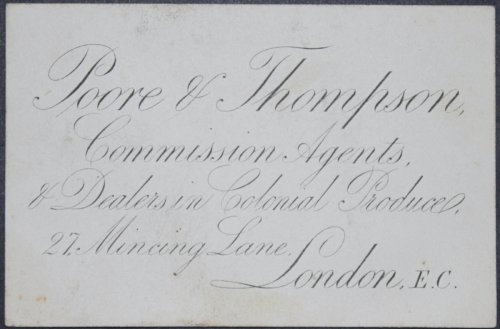 Poore & Thompson,
Commission Agents,
& Dealers in Colonial Produce,
27, Mincing Lane,
London, E.C.